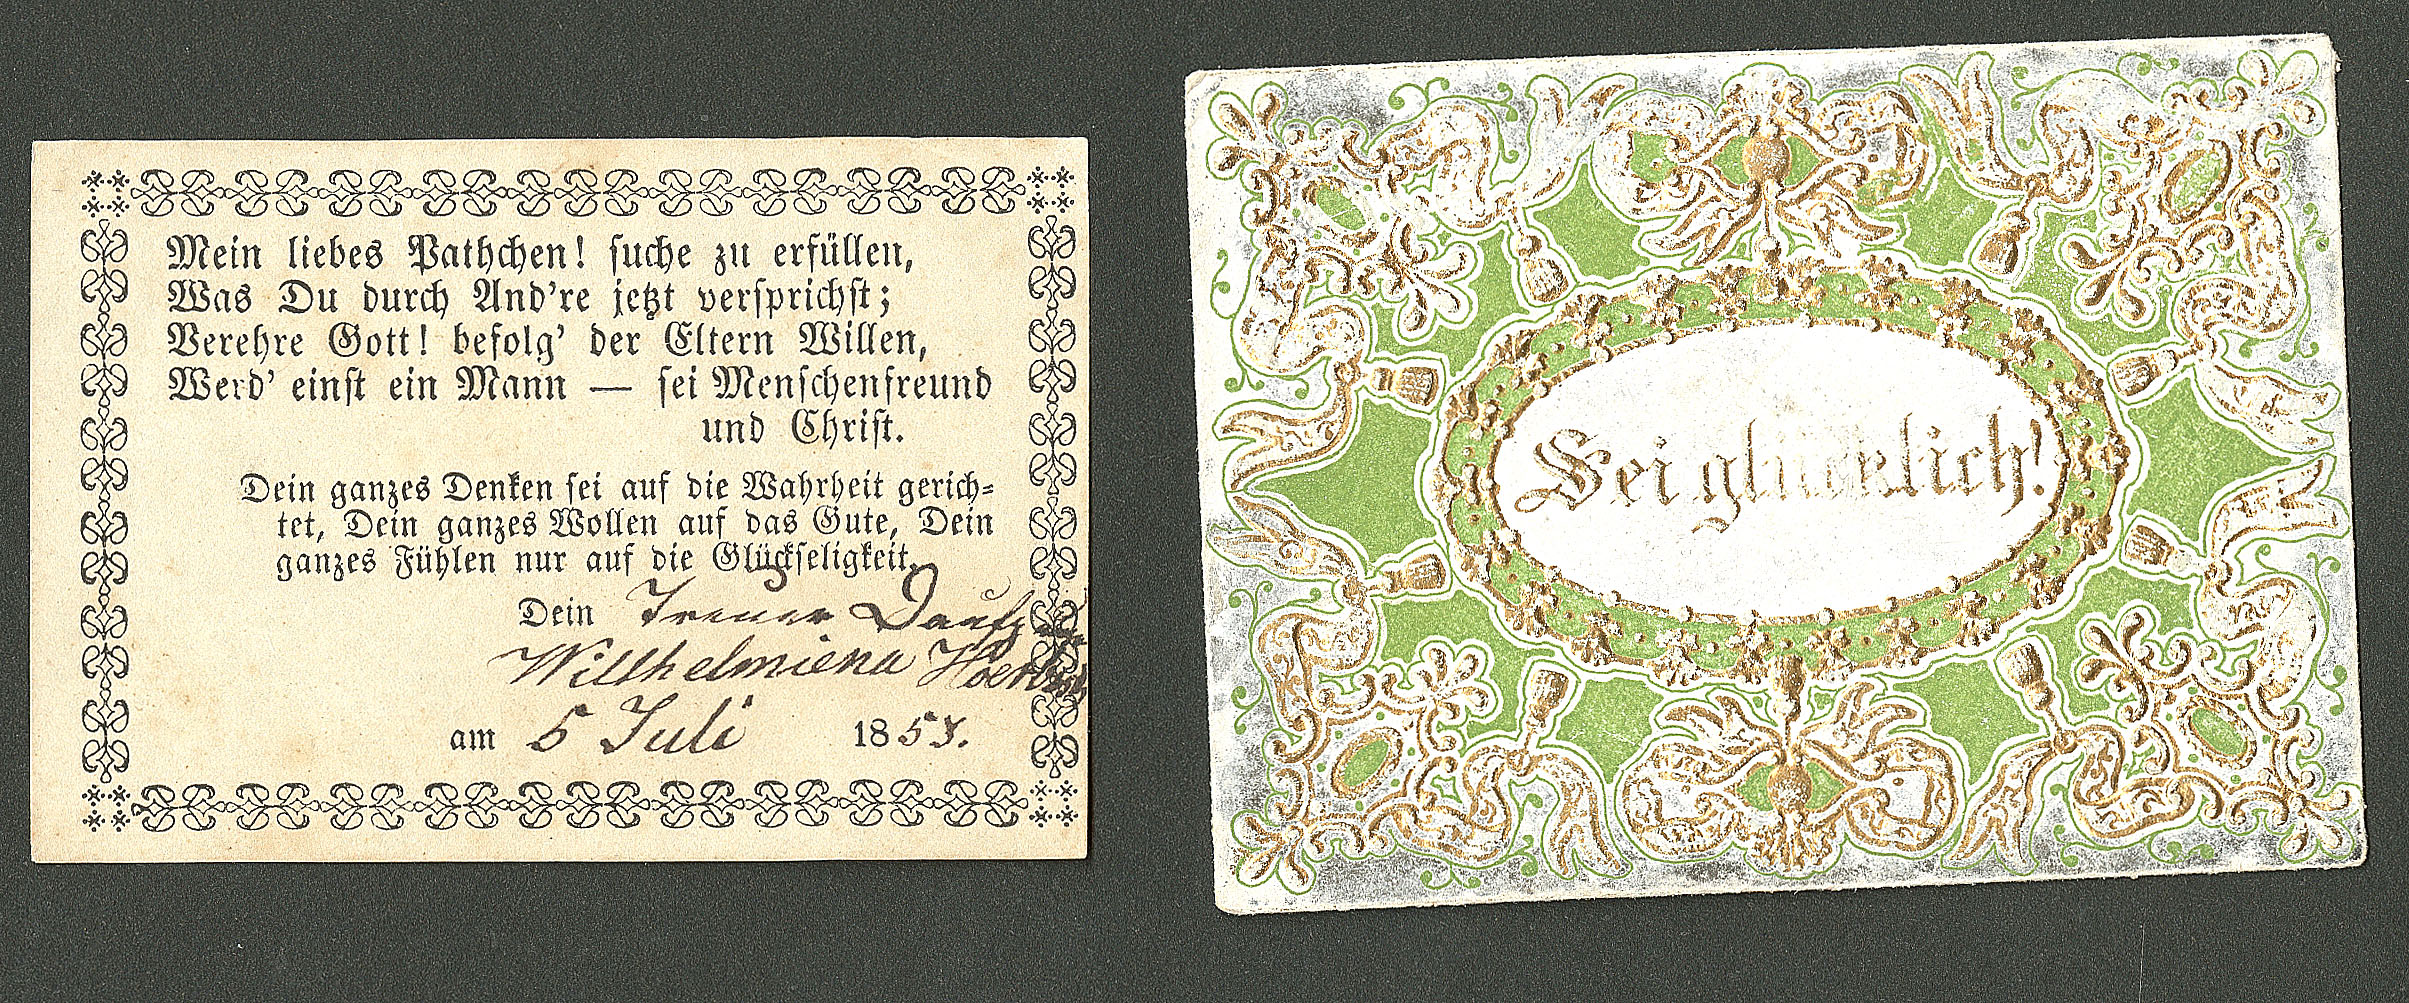 Mein liebes Pathchen! suche zu erfüllen,
Was Du durch And're jetzt versprichst;
Verehre Gott! befolg' der Eltern Willen,
Werd' einst ein Mann — sei Menschenfreund
und Christ.
Dein ganzes Denken sei auf die Wahrheit gerich=
tet, Dein ganzes Wollen auf das Gute, Dein
ganzes Fühlen nur auf die Glückseligkeit.
Dein Treuer
Willhelmiena
am 5 Juli 1853.
Sei glücklich!